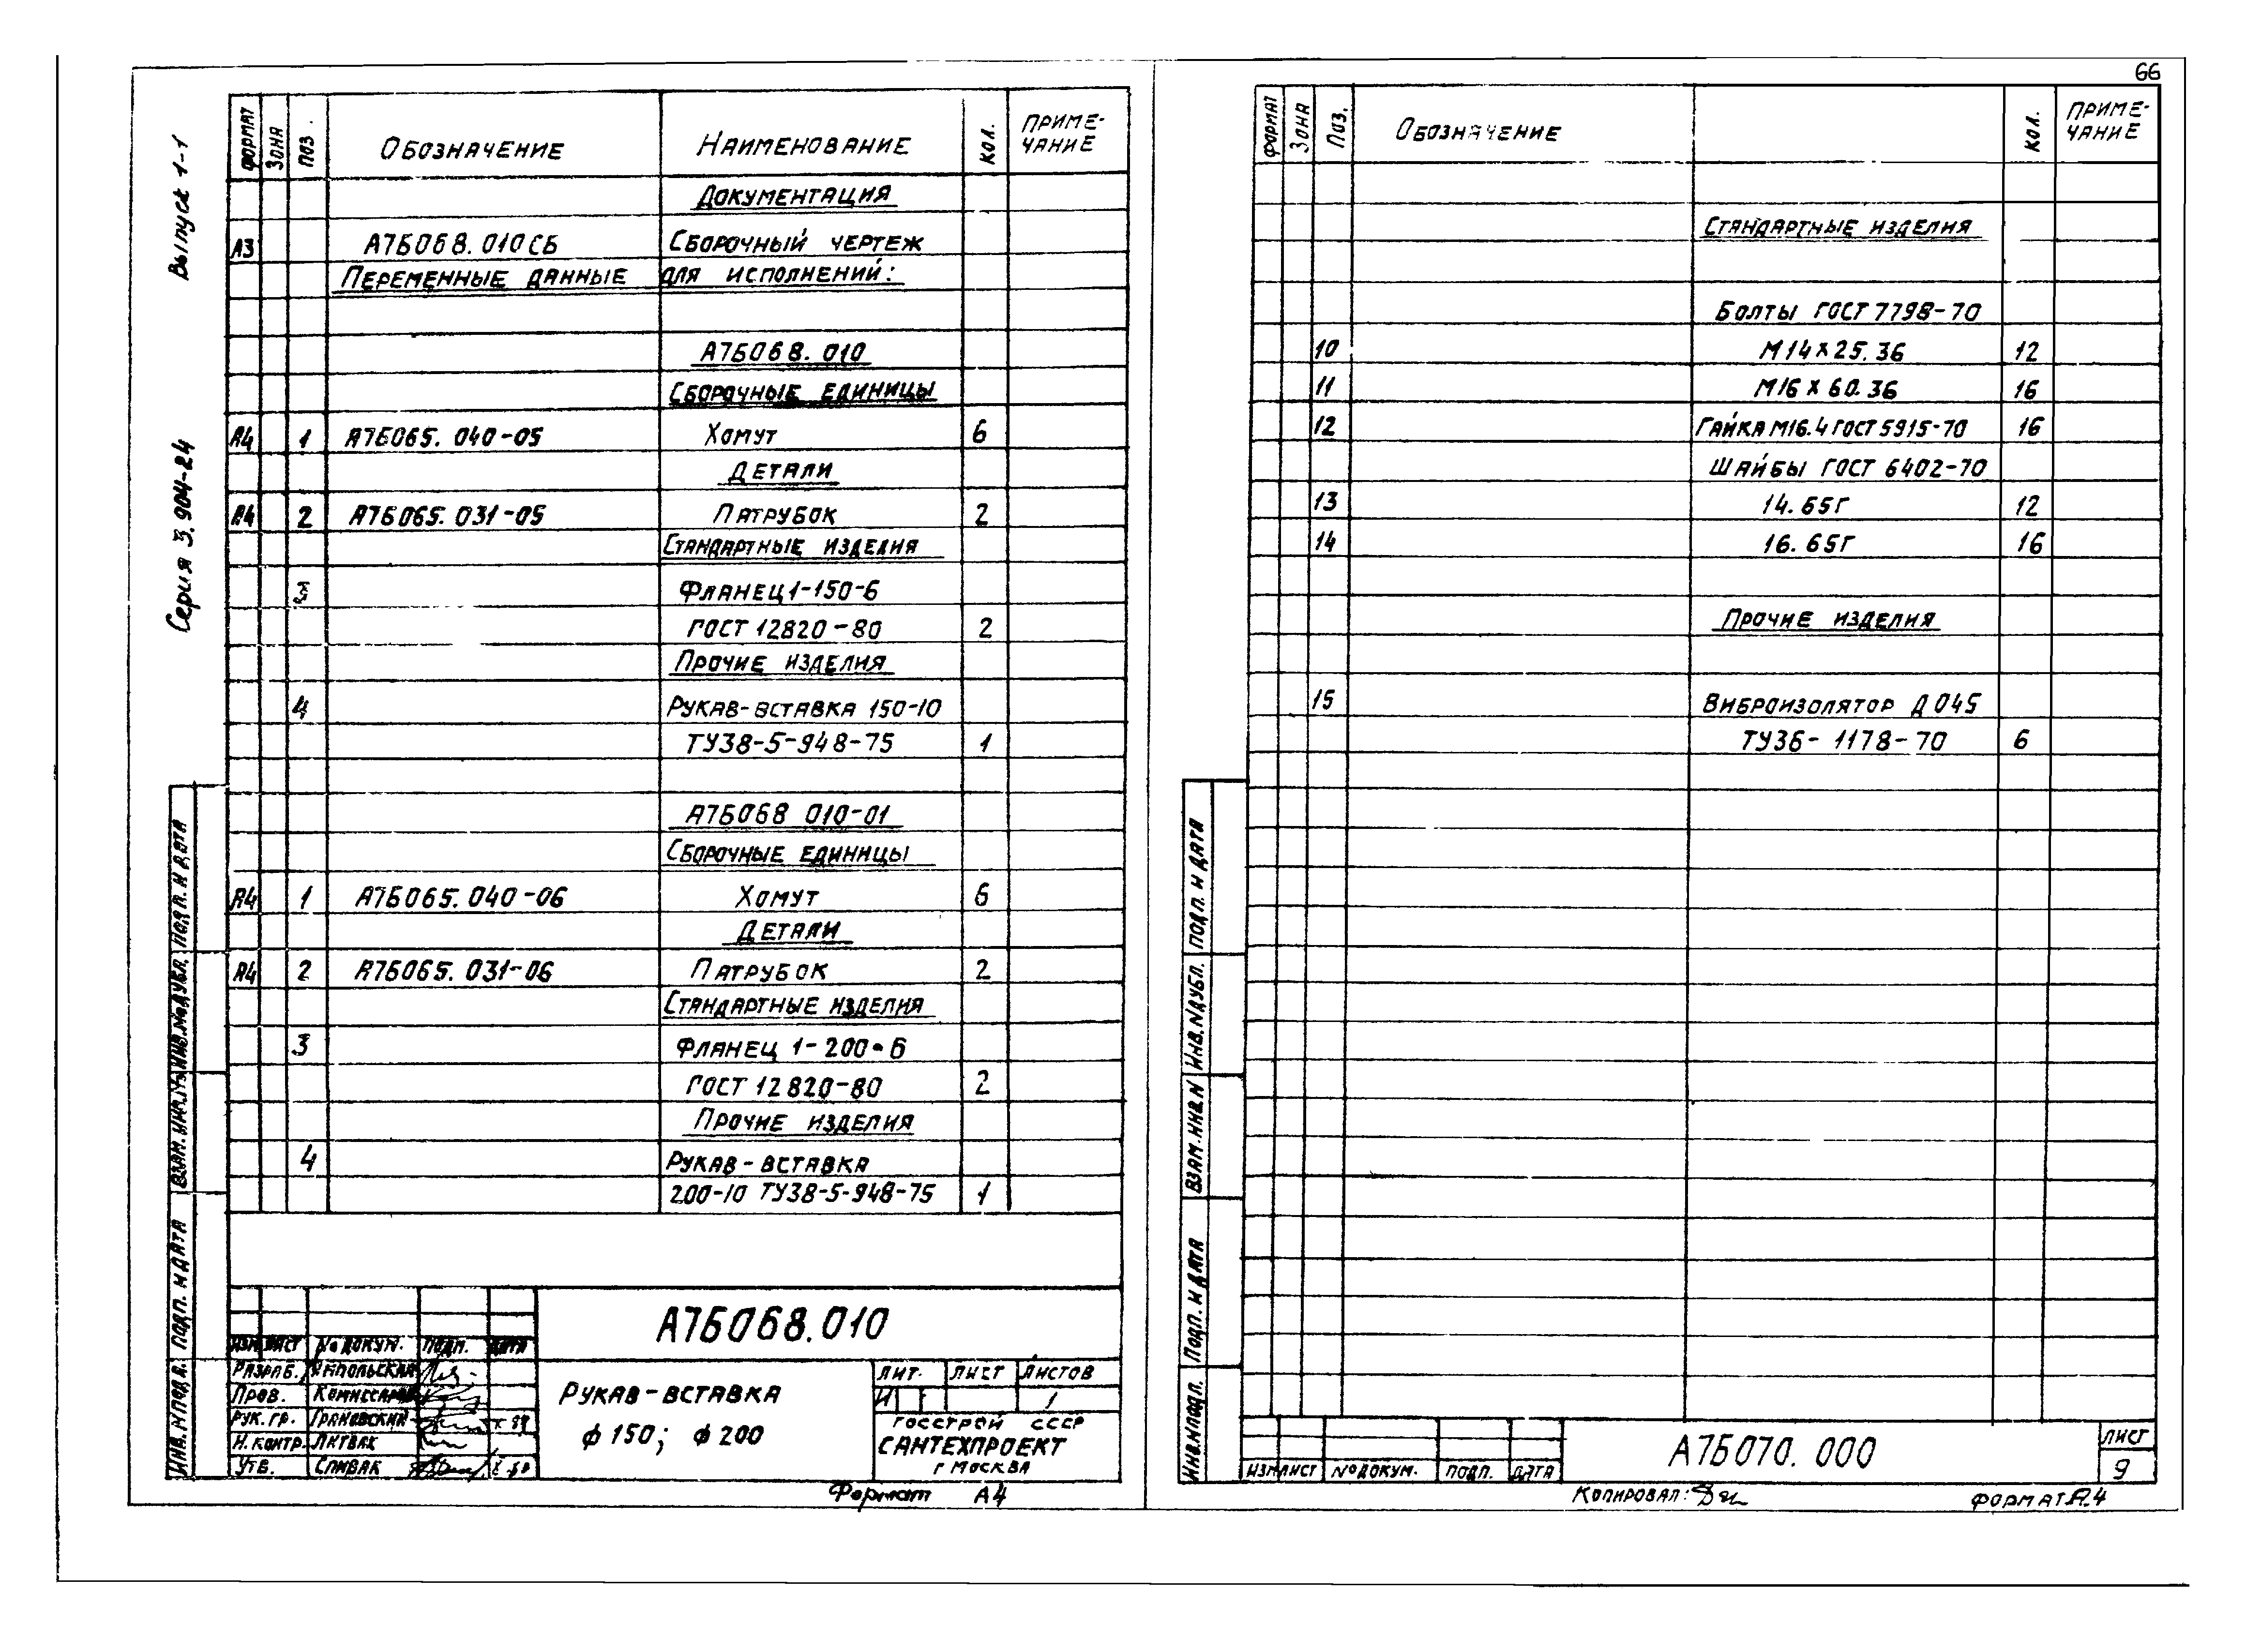 66
Выпуск 1-1
Серия 3.904-24
ФОРМАТ ЗОНА ПОЗ. ОБОЗНАЧЕНИЕ НАИМЕНОВАНИЕ КОЛ. ПРИМЕ-
ЧАНИЕ
ДОКУМЕНТАЦИЯ
А3 А7Б068.010СБ СБОРОЧНЫЙ ЧЕРТЕЖ
ПЕРЕМЕННЫЕ ДАННЫЕ ДЛЯ ИСПОЛНЕНИЙ:
А7Б068.010
СБОРОЧНЫЕ ЕДИНИЦЫ
А4 1 А7Б065.040-05 ХОМУТ 6
ДЕТАЛИ
А4 2 А7Б065.031-05 ПАТРУБОК 2
СТАНДАРТНЫЕ ИЗДЕЛИЯ
3 ФЛАНЕЦ 1-150-6
ГОСТ 12820-80 2
ПРОЧИЕ ИЗДЕЛИЯ
4 РУКАВ-ВСТАВКА 150-10
ТУ38-5-948-75 1
А7Б068 010-01
СБОРОЧНЫЕ ЕДИНИЦЫ
А4 1 А7Б065.040-06 ХОМУТ 6
ДЕТАЛИ
А4 2 А7Б065.031-06 ПАТРУБОК 2
СТАНДАРТНЫЕ ИЗДЕЛИЯ
3 ФЛАНЕЦ 1-200-6
ГОСТ 12820-80 2
ПРОЧИЕ ИЗДЕЛИЯ
4 РУКАВ-ВСТАВКА
200-10 ТУ38-5-948-75 1
ИНВ.№ПОДЛ. ПОДП. И ДАТА ВЗАМ. ИНВ.№ ИНВ.№ДУБЛ. ПОДП. И ДАТА
А7Б068.010
ИЗМ ЛИСТ №ДОКУМ. ПОДП. ДАТА
РАЗРАБ.
ПРОВ.
РУК. ГР. ГРАНОВСКИЙ
Н. КОНТР. ЛИТВАК
УТВ. СПИВАК
РУКАВ-ВСТАВКА
ф 150; ф 200
ЛИТ. ЛИСТ ЛИСТОВ
И 1
ГОССТРОЙ СССР
САНТЕХПРОЕКТ
Г МОСКВА
Формат А4
ФОРМАТ ЗОНА ПОЗ. ОБОЗНАЧЕНИЕ КОЛ. ПРИМЕ-
ЧАНИЕ
СТАНДАРТНЫЕ ИЗДЕЛИЯ
БОЛТЫ ГОСТ 7798-70
10 М14х25.36 12
11 М16х60.36 16
12 ГАЙКА М16.4 ГОСТ 5915-70 16
ШАЙБЫ ГОСТ 6402-70
13 14.65Г 12
14 16.65Г 16
ПРОЧИЕ ИЗДЕЛИЯ
15 ВИБРОИЗОЛЯТОР ДО45
ТУ36-1178-70 6
ИНВ.№ПОДЛ. ПОДП. И ДАТА ВЗАМ. ИНВ.№ ИНВ.№ДУБЛ. ПОДП. И ДАТА
ИЗМ ЛИСТ №ДОКУМ. ПОДП. ДАТА
А7Б070.000
ЛИСТ
9
КОПИРОВАЛ:
ФОРМАТ А4